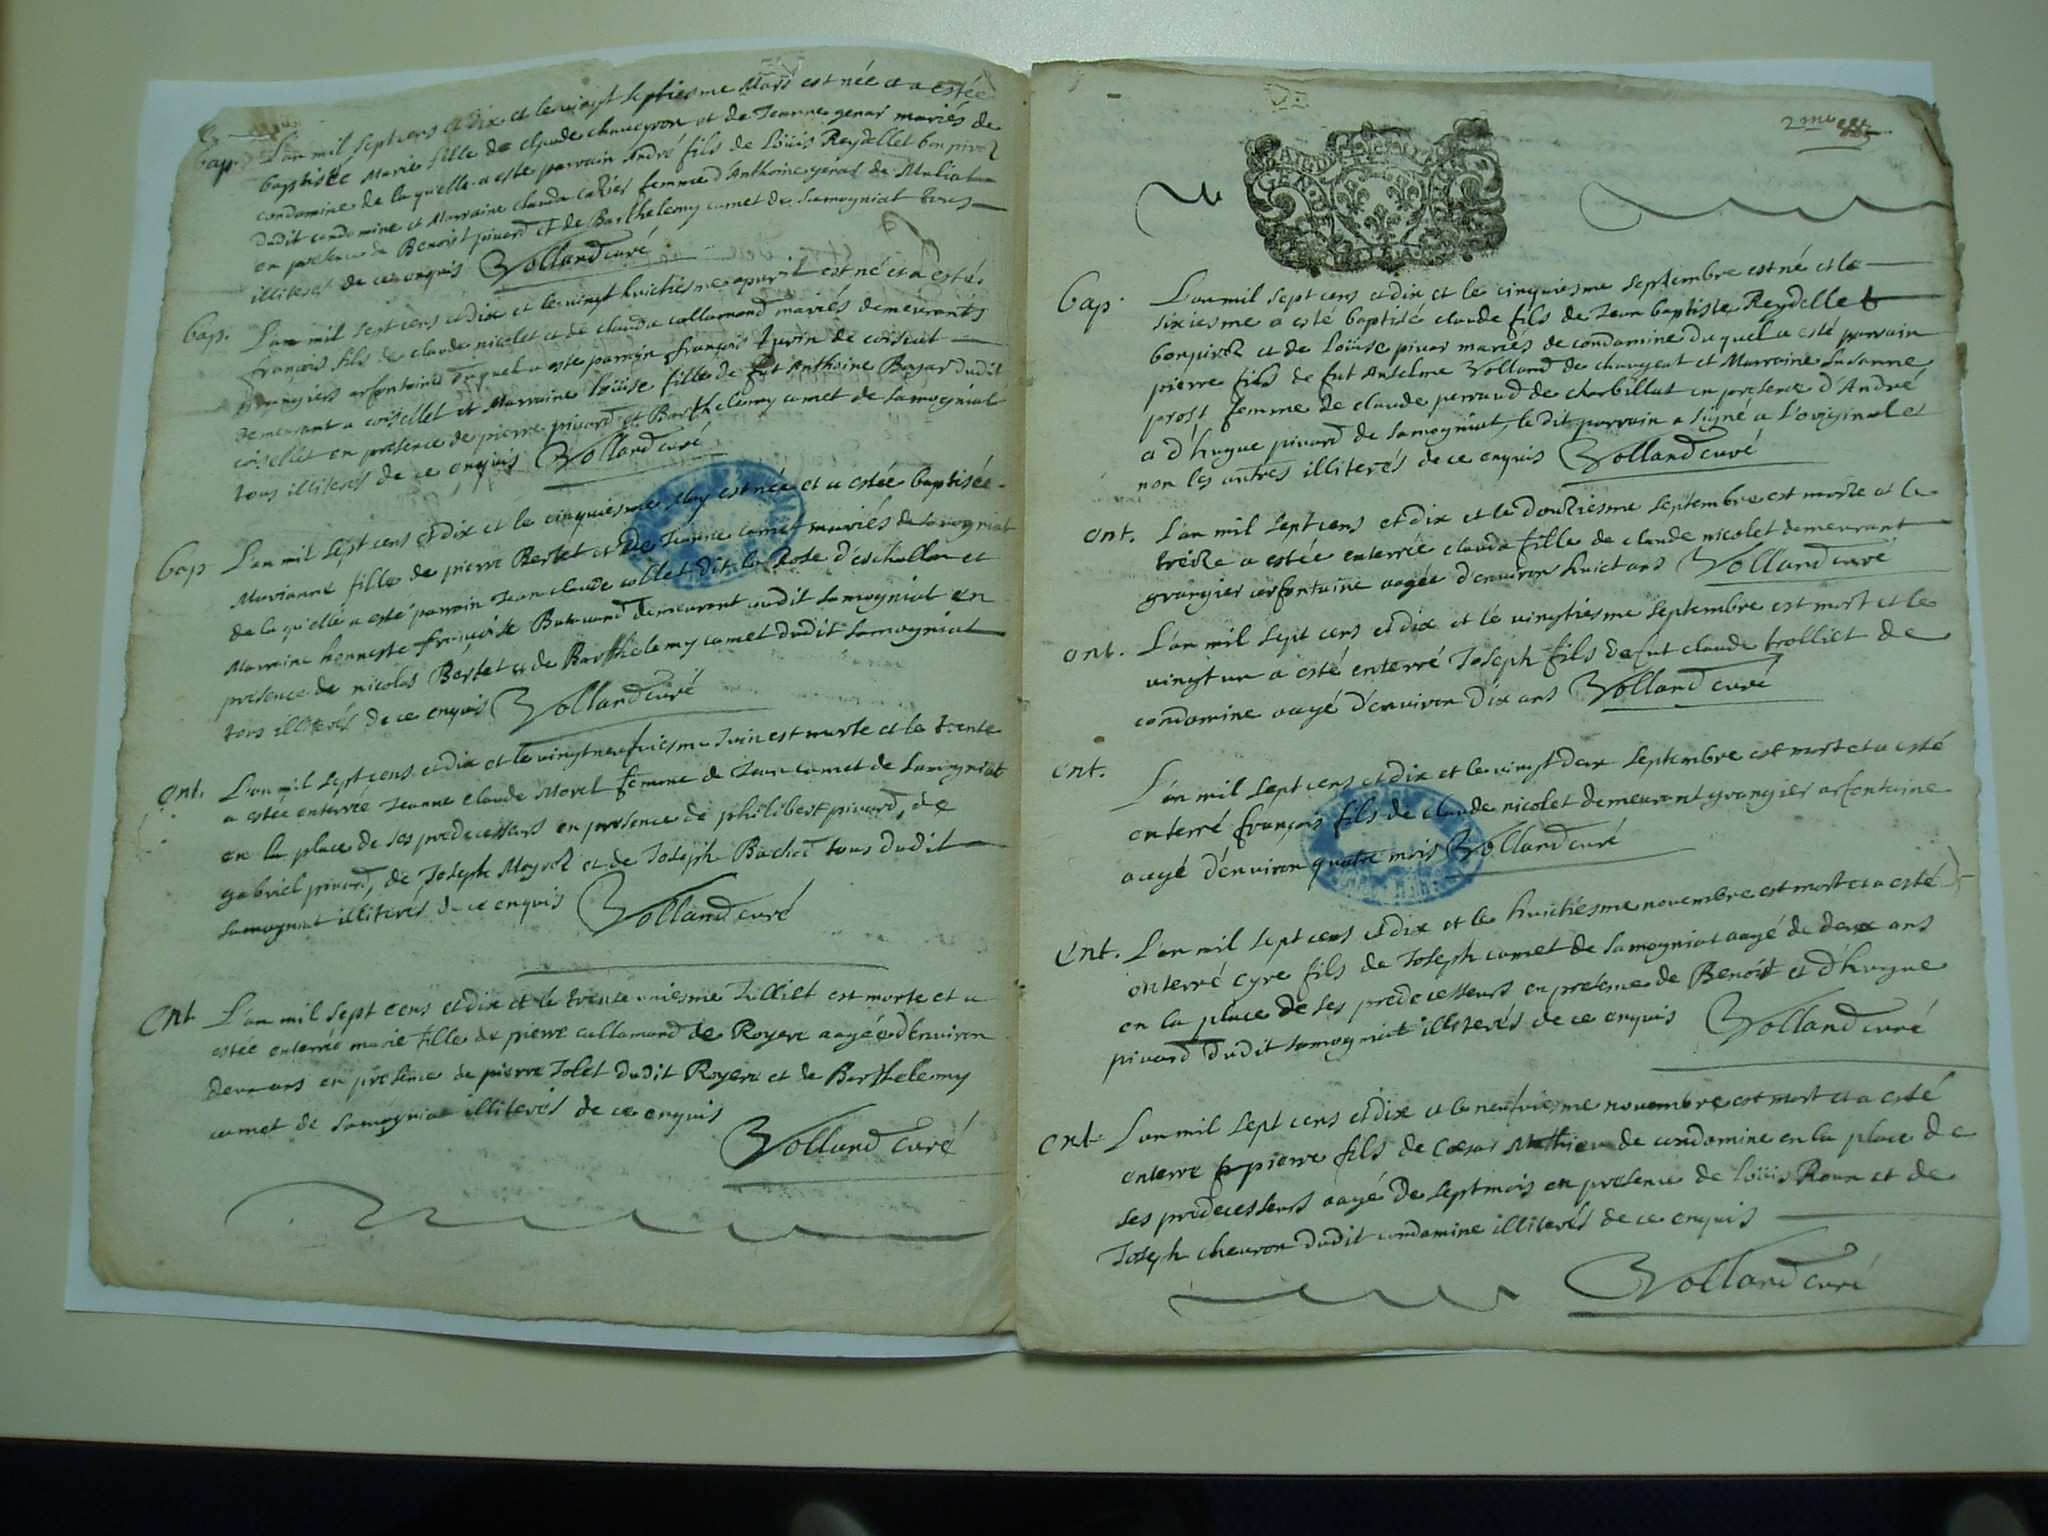 bap. L'an mil sept cens et dix et le vingt septiesme Mars est née et a estée
baptisée Marie fille de claude chaveyron et de Jeanne genar mariés de
condamine de laquelle a esté parrain André fils de Loüis Reydellet bonpivol
dudit condamine et Marraine clauda femme d'Anthoine genar de Maliat
en presence de Benoist pivard et de Barthelemy camet de Samogniat tous
illiterés de ce enquis Volland curé
bap. L'an mil sept cens et dix et le vingt huictiesme apvril est né et a esté
françois fils de claude nicolet et de clauda callamand mariés demeurants
grangiers arfontaine duquel a esté parrain françois Juvin de coisiat
demeurant a coisellet et Marraine loüise fille de fut Anthoine Bajar dudit
coisellet en presence de pierre pivard et Barthelemy camet de Samogniat
tous illiterés de ce enquis Volland curé
bap L'an mil sept cens et dix et le cinquiesme May est née et a estée baptisée
Marianne fille de pierre Bertet et de Jeanne camet mariés de Samogniat
de laquelle a esté parrain Jean claude collet dit la Rose d'eschallon et
Marraine honneste françoise demeurant audit Samogniat en
presence de nicolas Bertet et de Barthelemy camet dudit Samogniat
tous illiterés de ce enquis Volland curé
ent. L'an mil sept cens et dix et le vingt neufviesme Juin est morte et le trente
a estée enterrée Jeanne claude Morel femme de Jean camet de Samogniat
en la place de ses predecesseurs en presence de philibert pivard, de
gabriel pivard, de Joseph Moyroz et de Joseph Bachod tous dudit
Samogniat illiterés de ce enquis Volland curé
ent L'an mil sept cens et dix et le trente uniesme Jullict est morte et a
estée enterré marie fille de pierre callamand de Royere aagée d'environ
deux ans en presence de pierre Jolet dudit Royere et de Barthelemy
camet de Samogniat illiterés de ce enquis
Volland curé
2me
GEN
bap. L'an mil sept cens et dix et le cinquiesme septembre est né et le
sixiesme a esté baptisé claude fils de Jean baptiste Reydellet
bonpivol et de Loüise pivar mariés de condamine duquel a esté parrain
pierre fils de fut Anselme Volland de changeat et Marraine Susanne
prost femme de claude perraud de charbillat en presence d'André
a d'hugue pivard de Samogniat, le dit parrain a signé a L'original et
non les autres illiterés de ce enquis Volland curé
ent. L'an mil sept cens et dix et le douziesme septembre est morte et le
treize a estée enterrée clauda fille de claude nicolet demeurant
grangier arfontaine aagée d'environ huict ans Volland curé
ent. L'an mil sept cens et dix et le vingtiesme septembre est mort et le
vingt un a esté enterré Joseph fils de fut claude trolliet de
condamine aagé d'environ dix ans Volland curé
ent. L'an mil sept cens et dix et le vingt deux septembre est mort et a esté
enterré françois fils de claude nicolet demeurant grangier arfontaine
aagé d'environ quatre mois Volland curé
ent. L'an mil sept cens et dix et le huictiesme novembre est mort et a esté
enterré cyre fils de Joseph camet de Samogniat aagé de deux ans
en la place de ses predecesseurs en presence de Benoist et d'hugue
pivard dudit Samogniat illiterés de ce enquis Volland curé
ent L'an mil sept cens et dix et le neufviesme novembre est mort et a esté
enterre pierre fils de Cæsar Mathieu de condamine en la place de
ses predecesseurs aagé de sept mois en presence de loüis Roux et de
Joseph chevron dudit condamine illiterés de ce enquis
Volland curé